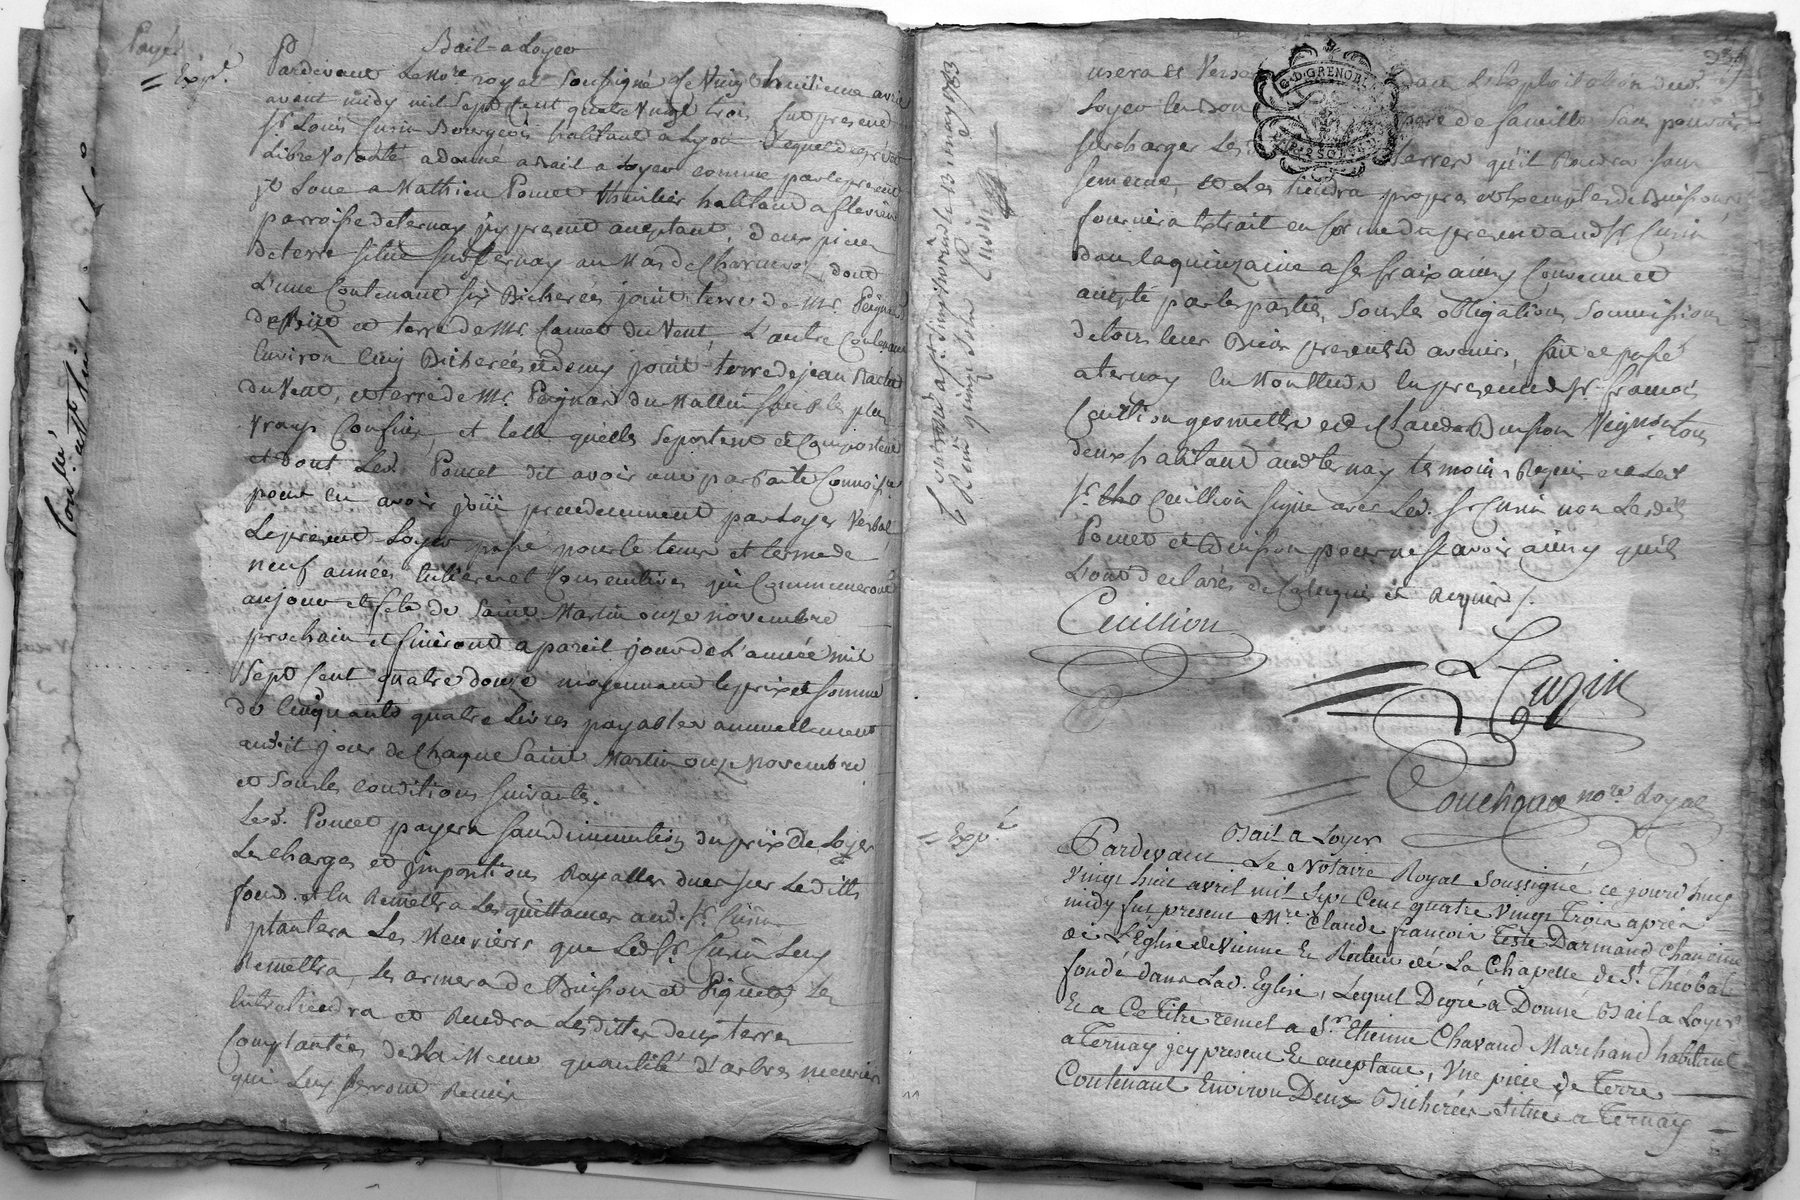 Payé
= Expé.
Bail a Loyer
Pardevant Le No.re royal soussigné ce Vingt huitieme avril
avant midy mil sept cent quatre Vingt trois, fut present
Sr. Louis Cuzin Bourgeois habitant a Lyon Lequel de gré et
Libre Volonté a donné a bail a Loyer comme par le present
il Loue a Mathieu Poncet habitant a flevieu
parroisse de ternay icy present aceptant, deux pieces
de terre situé sur ternay au Mas de dont
L'une Contenant six Bicherées joint terre de Mr. Peignard
et terre de Mr. Camet du Vent, L'autre Contenant
Environ Cinq Bicherées et demy joint terre de jean
du Vent, et terre de Mr. Peignard du Mattin sauf Les plus
Vrays Confins, et telle quelles se portent et Comportent
et dont Led. Poncet dit avoir une parfaite Connoisse
pour En avoir joüi precedemment par Loyer Verbal
Le present Loyer passé pour le tems et terme de
neuf années Entieres et Consecutives qui Commenceront
au jour et fete de Saint Martin onze novembre
prochain et finiront a pareil jour de L'année mil
Sept Cent quatre Vingt douze moyennant le prix et somme
de Cinquante quatre Livres payables annuellement
aud.it jour de Chaque Saint Martin onze Novembre
et sous les conditions suivantes.
Led. Poncet payera sans diminution du prix de Loyer
Les charges et impositions Royalles dues sur Lesdits
fond. et En Remettra Les quittances aud. Sr. Cuzin
plantera Les Meuriers que Led. Sr. Cuzin Luy
Remettra, Les armera de Buisson et Piquets, Les
Entretiendra et Rendra Lesdittes deux terres
Complantées de La Meme quantité d'arbres meuriers
qui Luy seront Remis
Controllé a St. Simphorien le 13 may 1783
Reçu quinze sols
usera et Versera dans L'exploitation dud.
Loyer En bon pere de famille sans pouvoir
surcharger Les terres qu'il Rendra sans
semence, et Les tiendra propres et Exemptes de Buissons
fournira Extrait en forme du present aud. Sr. Cuzin
dans la quinzaine a ses fraix ainsy Convenu et
accepté par les parties, sous les obligations soumissions
de tous leurs Biens presents et avenirs, fait et passé
a ternay En presence de Sr. francois
Cuillion geometre et Claude Buisson Vigneron tous
deux habitant aud. ternay temoins Requis et Led.
Sr. Cuillion signe avec Led. Sr Cuzin non Lesdits
Poncet et Buisson pour ne sçavoir ainsy quils
L'ont declarés de Ce enquis et Requis /.
Cuillion
L Cuzin
Couchoud no.re Royal
= Expé.
Bail a Loyer
Pardevant Le Notaire Royal Soussigné ce jourd'huy
Vingt huit avril mil Sept Cent quatre Vingt Trois après
midy fut present Mre. Claude francois Teste Darmand Chanoine
de L'Eglise de Vienne Et Recteur de La Chapelle de St. Théobal
fondé dans Lad. Eglise, Lequel De gré a Donné Bail a Loyer
Et a Ce titre remet a Sr. Etienne Chavand Marchand habitant
a Ternay icy present Et aceptant, Une piece de Terre
Contenant Environ Deux Bicherées située a Ternay